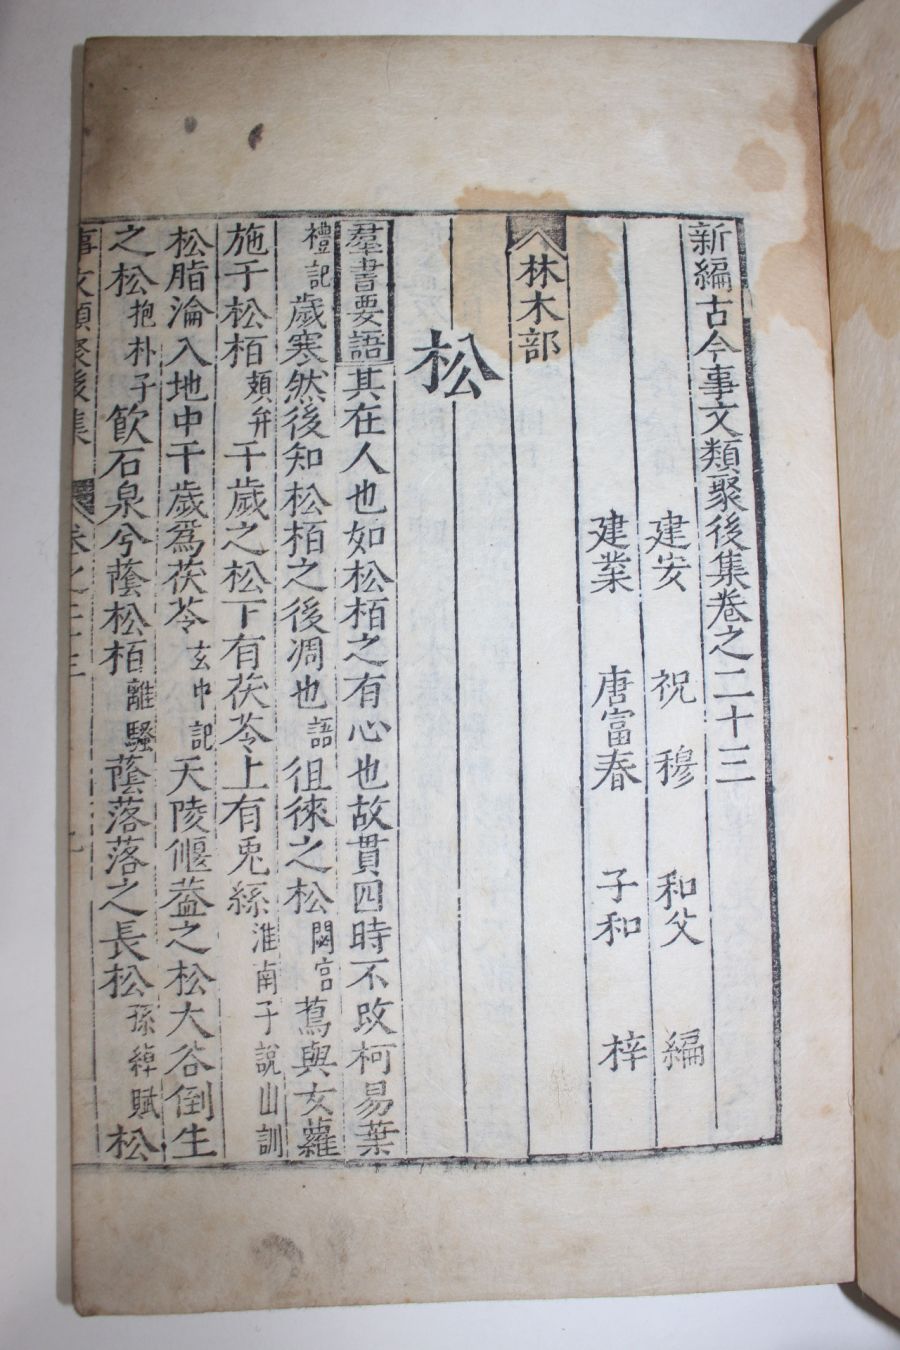 新編古今事文類聚後集卷之二十三
建安 祝穆 和父 編
建業 唐富春 子和 梓
林木部
松
羣書要語其在人也如松栢之有心也故貫四時不改柯易葉
禮記歲寒然後知松栢之後凋也語徂徠之松閟宮蔦與女蘿
施于松栢頍弁千歲之松下有茯苓上有兎絲淮南子說山訓
松脂淪入地中千歲爲茯苓玄中記天陵偃葢之松大谷倒生
之松抱朴子飲石泉兮蔭松栢離騷蔭落落之長松孫綽賦松
事文類聚後集 卷之二十三